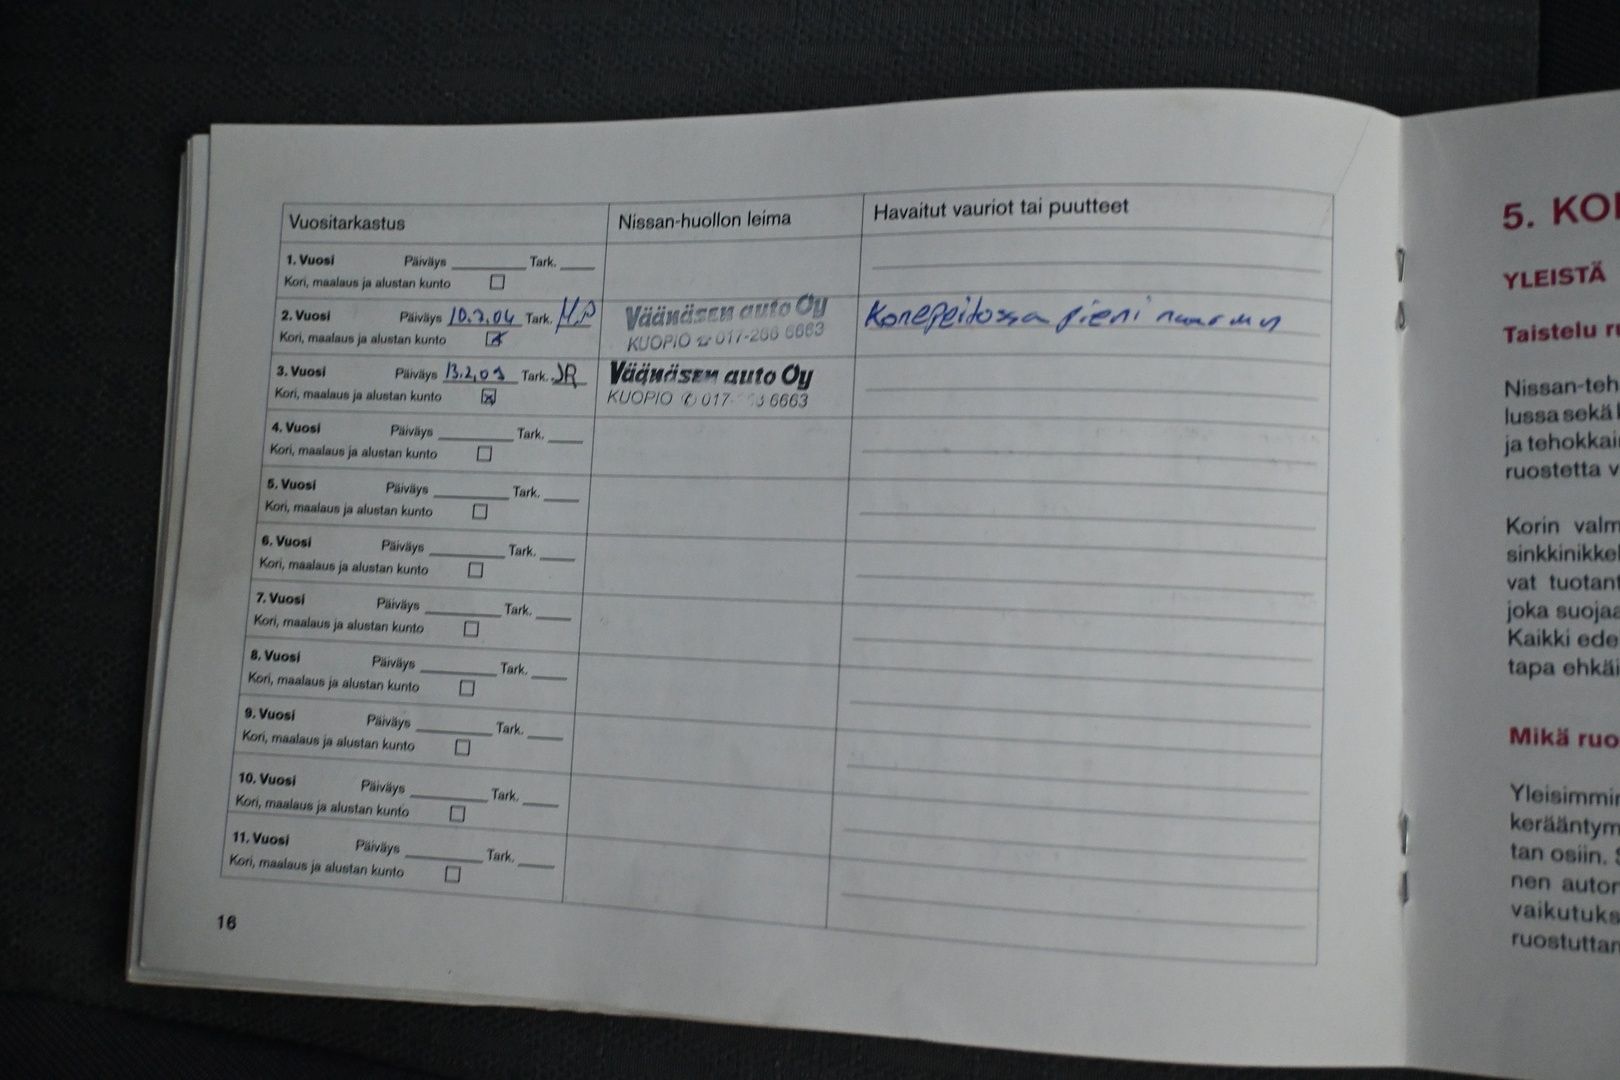 Vuositarkastus Nissan-huollon leima Havaitut vauriot tai puutteet
1. Vuosi Päiväys Tark.
Kori, maalaus ja alustan kunto
2. Vuosi Päiväys 10.2.04 Tark. M.P Väänäsen auto Oy Konepeitossa pieni naarmu
Kori, maalaus ja alustan kunto KUOPIO 017-266 6663
3. Vuosi Päiväys Tark. JR Väänäsen auto Oy
Kori, maalaus ja alustan kunto KUOPIO 017 6663
4. Vuosi Päiväys Tark.
Kori, maalaus ja alustan kunto
5. Vuosi Päiväys Tark.
Kori, maalaus ja alustan kunto
6. Vuosi Päiväys Tark.
Kori, maalaus ja alustan kunto
7. Vuosi Päiväys Tark.
Kori, maalaus ja alustan kunto
8. Vuosi Päiväys Tark.
Kori, maalaus ja alustan kunto
9. Vuosi Päiväys Tark.
Kori, maalaus ja alustan kunto
10. Vuosi Päiväys Tark.
Kori, maalaus ja alustan kunto
11. Vuosi Päiväys Tark.
Kori, maalaus ja alustan kunto
16
5. KO
YLEISTÄ
Taistelu ru
Nissan-teh
lussa sekä
ja tehokkai
ruostetta v
Korin valm
sinkkinikkel
vat tuotant
joka suojaa
Kaikki ede
tapa ehkäi
Mikä ruo
Yleisimmin
kerääntym
tan osiin. S
nen autor
vaikutuks
ruostuttan